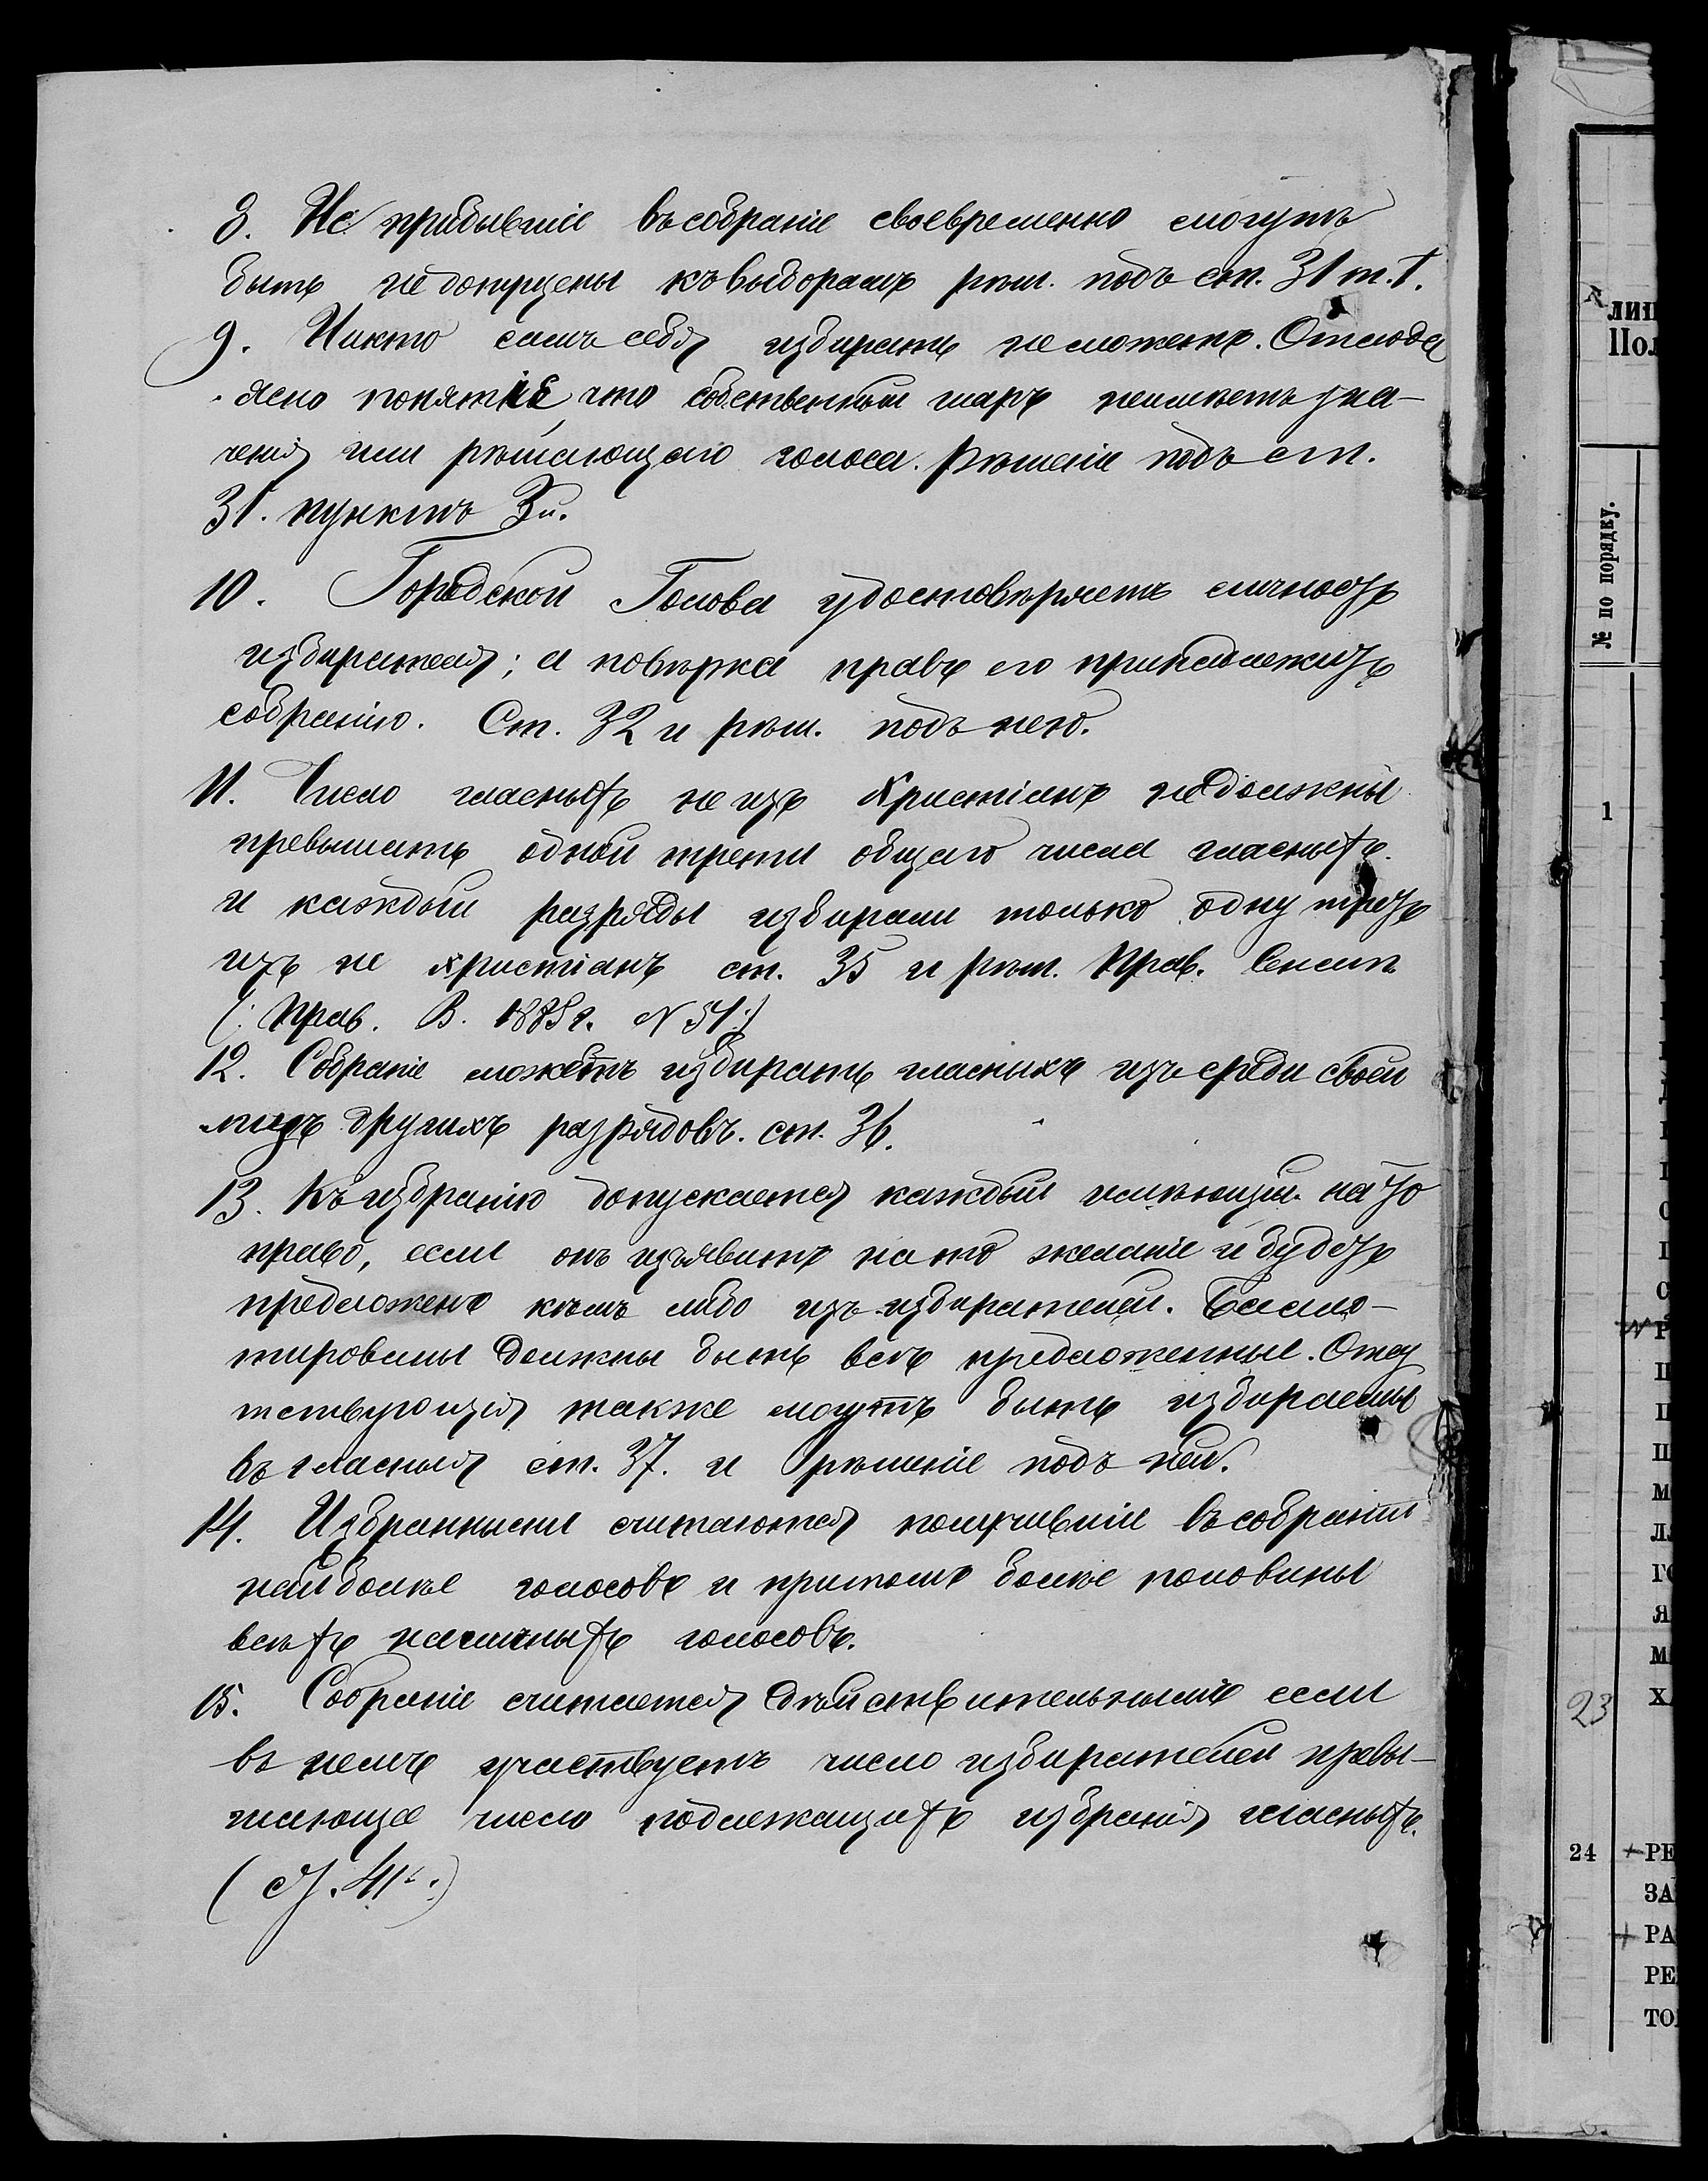 8. Не прибывшіе въ собраніе своевременно могутъ
быть недопущены къ выборамъ рѣш. подъ ст. 31 т. 1.
9. Никто самъ себя избирать не можетъ. Отсюда
ясно понятіе, что собственный шаръ неимѣетъ зна-
ченія или рѣшающаго голоса. Рѣшеніе подъ ст.
31. пунктъ 3й.
10. Городской Голова удостовѣряетъ личность
избирателя; а повѣрка правъ его принадлежитъ
собранію. Ст. 32 и рѣш. подъ нею.
11. Число гласныхъ не изъ христіанъ недолжны
превышать одной трети общаго числа гласныхъ.
и каждый разряды избирали только одну треть
изъ не христіанъ ст. 35 и рѣш. Прав. Сената
(: Прав. В. 1885 г. N 51 :)
12. Собраніе можетъ избирать гласныхъ изъ среди своей
лицъ другихъ разрядовъ. ст. 36.
13. Къ избранію допускается каждый имѣющій на то
право, если онъ изъявитъ на то желаніе и будетъ
предложенъ кѣмъ либо изъ избирателей. Балло-
тированы должны быть всѣ предложенные. Отсу
тствующія также могутъ быть избираемы
въ гласныя ст. 37. и рѣшеніе подъ ней.
14. Избранными считаются получившіе въ собраніи
наиболѣе голосовъ и притомъ болѣе половины
всѣхъ наличныхъ голосовъ.
15. Собраніе считается дѣйствительнымъ если
въ немъ участвуетъ число избирателей превы-
шающее число подлежащихъ избранія гласныхъ.
(ст. 41 :)
ЛИЦ
Пол
№ по порядку.
1
23
24
РЕ
ЗА
РА
РЕ
ТО